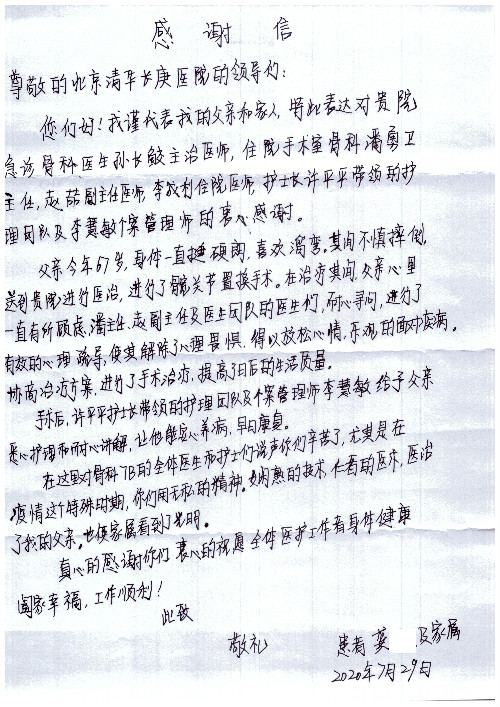 感谢信
尊敬的北京清华长庚医院的领导们：
你们好！我谨代表我的父亲和家人，特此表达对贵院
急诊骨科医生孙长鲛主治医师，住院手术室骨科潘勇卫
主任，赵喆副主任医师，李成利住院医师，护士长许平平带领的护
理团队及李慧敏个案管理师的衷心感谢。
父亲今年67岁，身体一直挺硬朗，喜欢遛弯。其间不慎摔倒，
送到贵院进行医治，进行了髋关节置换手术。在治疗其间，父亲心里
一直有所顾虑，潘主任，赵副主任及医生团队的医生们，耐心寻问，进行了
有效的心理疏导，使其解除了心理畏惧，得以放松心情，乐观的面对疾病。
协商治疗方案，进行了手术治疗，提高了日后的生活质量。
手术后，许平平护士长带领的护理团队及个案管理师李慧敏给予父亲
悉心护理和耐心讲解，让他能安心养病，早日康复。
在这里对骨科7B的全体医生和护士们说声你们辛苦了，尤其是在
疫情这个特殊时期，你们用无私的精神。娴熟的技术，仁者的医术，医治
了我的父亲。也使家属看到了光明。
真心的感谢你们 衷心的祝愿全体医护工作者身体健康
阖家幸福，工作顺利！
此致
敬礼 患者 龚 及家属
2020年7月29日